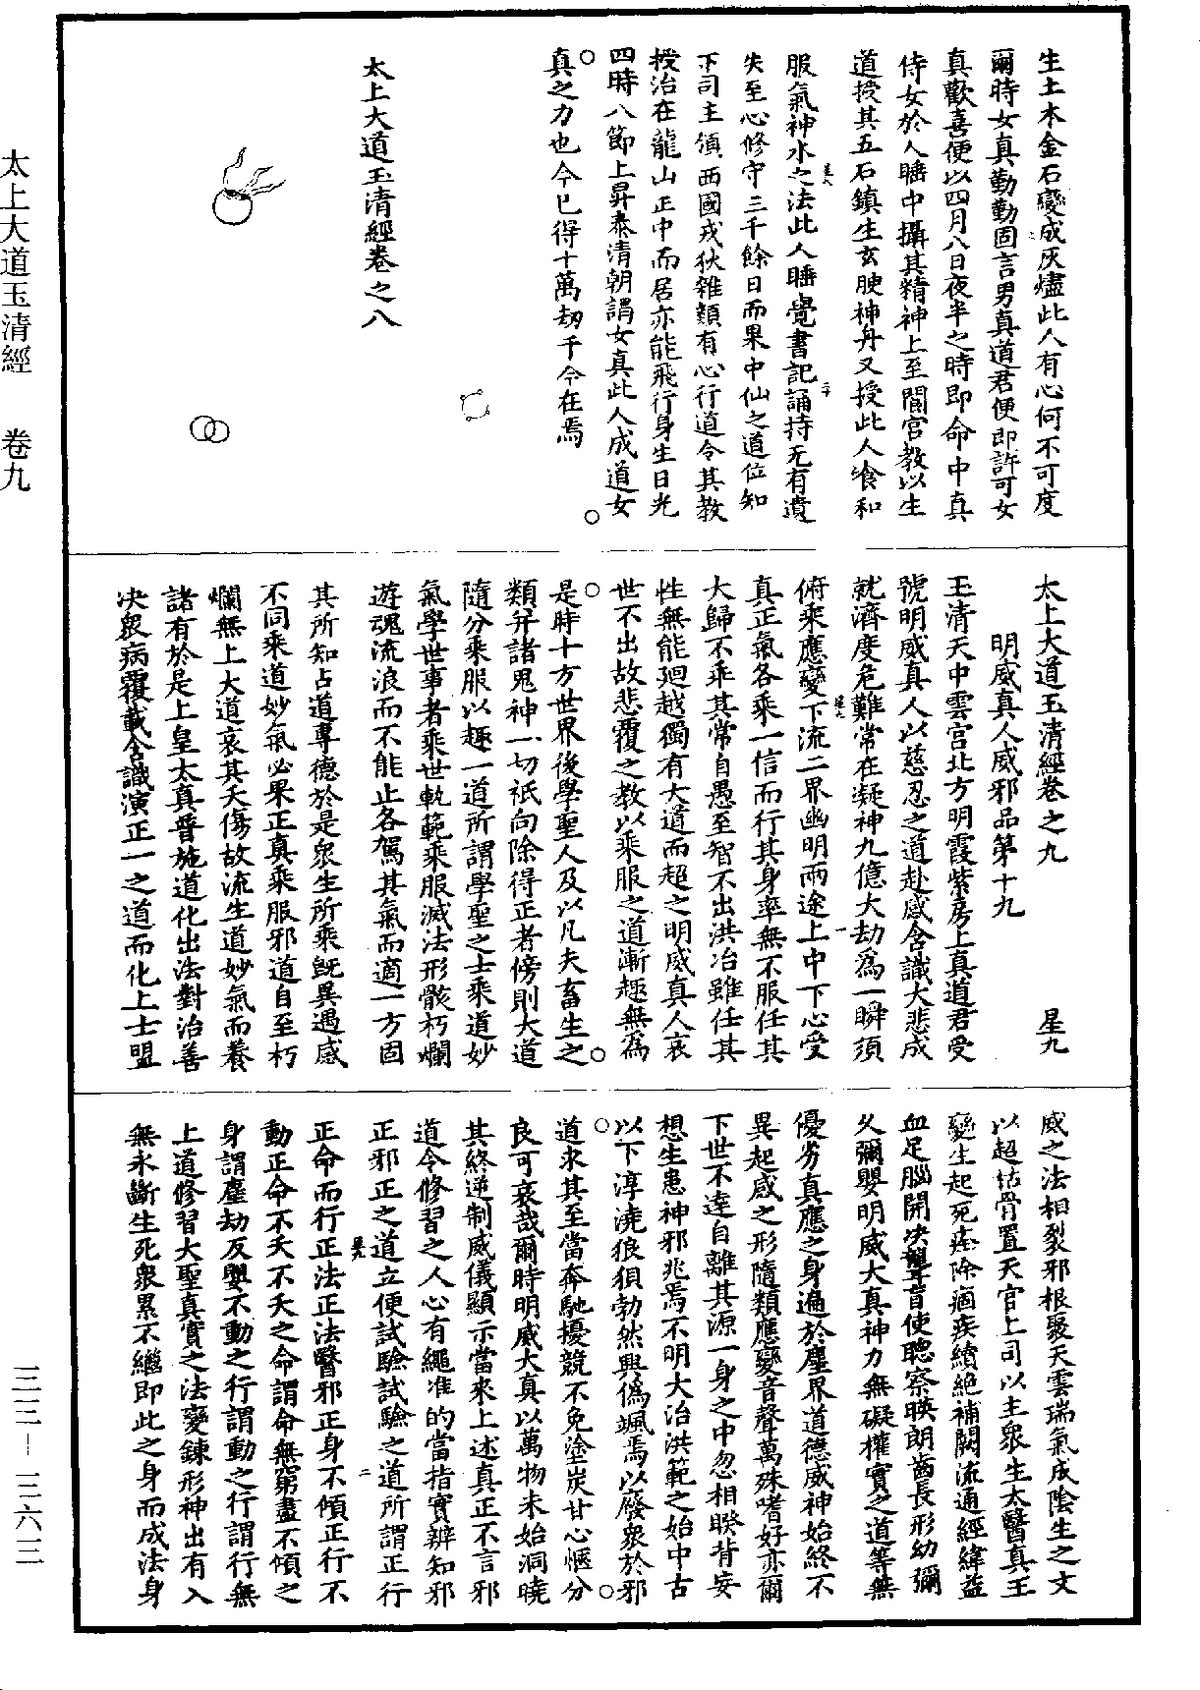 太上大道玉清經　卷九
三三—三六三
生土本金石變成灰燼此人有心何不可度
爾時女真勤勤固言男真道君便即許可女
真歡喜便以四月八日夜半之時即命中真
侍女於人睡中攝其精神上至閬宮教以生
道授其五石鎮生玄腴神丹又授此人飡和
服氣神水之法此人睡覺書記誦持无有遺
失至心修守三千餘日而果中仙之道位知
下司主領西國戎狄雜類有心行道令其教
授治在龍山正中而居亦能飛行身生日光
四時八節上昇泰清朝謁女真此人成道女
真之力也今已得十萬劫千今在焉
太上大道玉清經卷之八
太上大道玉清經卷之九　星九
明威真人威邪品第十九
玉清天中雲宮北方明霞紫房上真道君受
號明威真人以慈忍之道赴感含識大悲成
就濟度危難常在凝神九億大劫為一瞬須
俯乘應變下流二界幽明兩途上中下心受
真正氣各乘一信而行其身率無不服任其
大歸不乖其常自愚至智不出洪冶雖任其
性無能廻越獨有大道而超之明威真人哀
世不出故悲覆之教以乘服之道漸趣無為
是時十方世界後學聖人及以凡夫畜生之
類并諸鬼神一切祇向除得正者傍則大道
隨分乘服以趣一道所謂學聖之士乘道妙
氣學世事者乘世軌範乘服滅法形骸朽爛
遊魂流浪而不能止各駕其氣而適一方固
其所知占道專德於是眾生所乘旣異遇感
不同乘道妙氣必果正真乘服邪道自至朽
爛無上大道哀其夭傷故流生道妙氣而養
諸有於是上皇太真普施道化出法對治善
决眾病覆載含識演正一之道而化上士盟
威之法相裂邪根聚天雲瑞氣成陰生之文
以超枯骨置天官上司以主眾生太醫真王
變生起死痊除痼疾續絕補闕流通經緯益
血足腦開决聾盲使聰察暎朗齒長形幼彌
久彌嬰明威大真神力無礙權實之道等無
優劣真應之身遍於塵界道德威神始終不
異起感之形隨類應變音聲萬殊嗜好亦爾
下世不達自離其源一身之中忽相暌背妄
想生患神邪兆焉不明大治洪範之始中古
以下淳澆狼狽勃然興偽颯焉以廢眾於邪
道求其至當奔馳擾競不免塗炭甘心愜分
良可哀哉爾時明威大真以萬物未始洞曉
其終逆制威儀顯示當來上述真正不言邪
道令修習之人心有繩准的當指實辨知邪
正邪正之道立便試驗試驗之道所謂正行
正命而行正法正法醫邪正身不傾正行不
動正命不夭不夭之命謂命無窮盡不傾之
身謂塵劫反嬰不動之行謂動之行謂行無
上道修習大聖真實之法變鍊形神出有入
無永斷生死眾累不繼即此之身而成法身